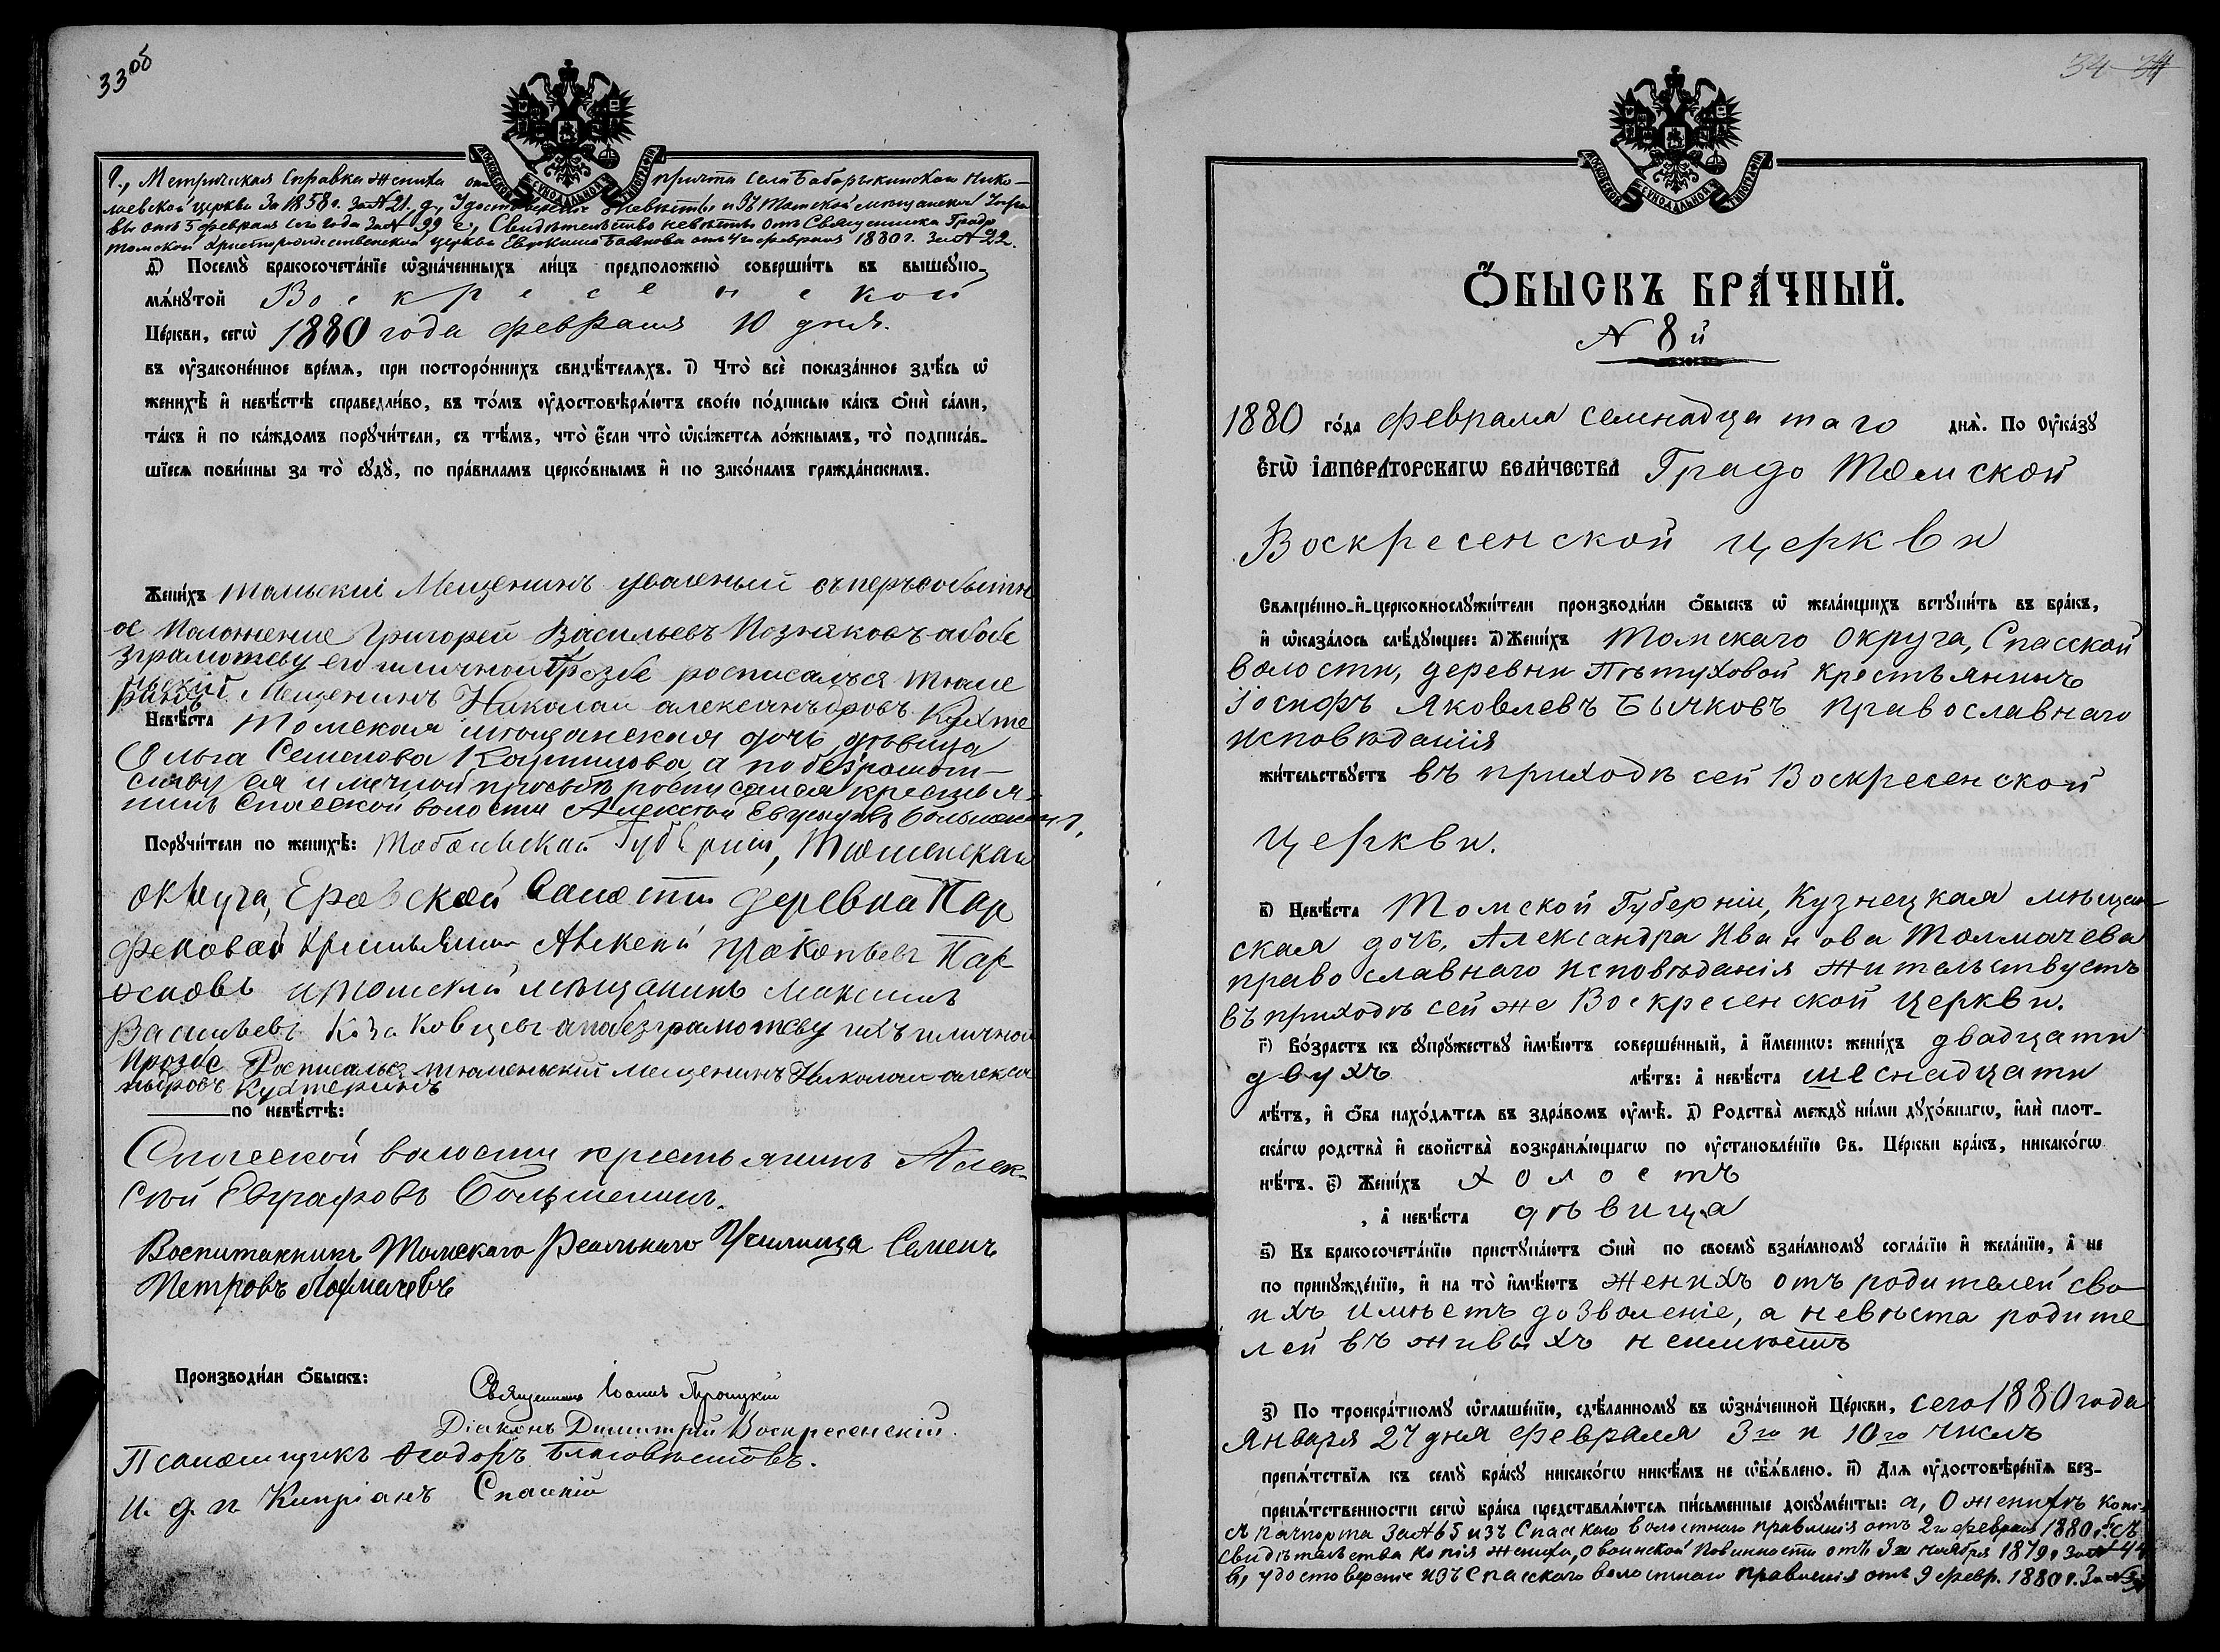 33об
г., Метрическая Справка жениха отъ причта села Бабарыкинской Нико-
лаевской церкви За 1858 г. За № 21. д., Удостоверенiе невѣсты изъ Томской мещанской Упра
вы отъ 5 февраля сего года За № 99 е., Свидѣтельство невѣсты отъ Священника Градо
Томской христорождественской церкви Евфимiя отъ 4го февраля 1880 г. За № 22.
д҃) Посемꙋ̀ бракосочета́нїе ѡ҆зна́ченныхъ ли́цъ предположено̀ соверши́ть въ вышеꙋпо-
мѧ́нꙋтой Воскресенской
Це́ркви, сегѡ̀ 1880 года февраля 10 дня.
въ ᲂу҆законе́нное вре́мѧ, при посторо́ннихъ свидѣ́телѧхъ. і҃) Что̀ всѐ показа́нное здѣ́сь ѡ҆
женихѣ̀ и҆ невѣ́стѣ справедли́во, въ то́мъ ᲂу҆достовѣрѧ́ютъ свое́ю по́дписью ка́къ ѻ҆нѝ са́ми,
та́къ и҆ по ка́ждомъ порꙋчи́тели, съ тѣ́мъ, что̀ є҆́сли что̀ ѡ҆ка́жетсѧ ло́жнымъ, то̀ подписа́в-
шїесѧ пови́нны за то̀ сꙋдꙋ̀, по пра́виламъ церко́внымъ и҆ по зако́намъ гражда́нскимъ.
Жени́хъ томьскиi Мещенинъ уваленый съперъсобытн
ое Положение Григорей Васильевъ Позняковъ апобе
зграмотеву его иличной прозбе росписался тюме
ньский Мещенинъ Николаи александровъ Кухте
ринъ
Невѣ́ста Томская мещанская дочь дѣвица
Ольга Семенова а по безграмот-
ству ея и личной просьбѣ росписался крестья-
нинъ Спасской волости Алексѣй Евграфовъ Большенинъ.
Порꙋчи́тели по женихѣ̀: Тобольской Губернiи, Тюменскаи
округа, волости деревна Пар
феновай Крестьянин Алексей Прокопьевъ Пар
феновъ итомскiи мещанинъ Максимъ
Васильевъ апобезграмотеву ихъ иличной
прозбе Росписалься тюменьский мещенинъ Николаи алекса
ндровъ Кухтеринъ
по невѣ́стѣ:
Спасской волости крестьянинъ Алек-
сѣй Евграфовъ Большенинъ.
Воспитанникъ Томскаго Реальнаго Училища Семенъ
Петровъ Толмачевъ
Производи́ли ѻ҆́быскъ:
Священникъ Iоаннъ
Дiаконъ Димитрiй Воскресенскiй.
Псаломщикъ Ѳеодоръ Благовѣстовъ.
И. д. п. Кипрiанъ Спасскiй
34 34
Ѻ҆́БЫСКЪ БРА́ЧНЫЙ.
N 8й
1880 го́да февраля семнадцатаго днѧ̀. По Оу҆ка́зꙋ
Є҆ГѠ̀ И҆МПЕРА́ТОРСКАГѠ ВЕЛИ́ЧЕСТВА Градо Томской
Воскресенской церкви
Свѧще́нно-и҆-церковнослꙋжи́тели производи́ли ѻ҆́быскъ ѡ҆ жела́ющихъ встꙋпи́ть въ бра́къ,
и҆ ѡ҆каза́лось слѣ́дꙋющее: а҃) Жени́хъ Томскаго Округа, Спасской
волости, деревни Пѣтуховой Крестьянинъ
Iосифъ Яковлевъ Бычковъ Православнаго
исповѣданiя
жи́тельствꙋетъ въ приходѣ сей Воскресенской
церкви.
в҃) Невѣ́ста Томской Губернiи, Кузнецкая мѣщан-
ская дочь, Александра Иванова Толмачева
православнаго исповѣданiя жительствуетъ
въ приходѣ сей же Воскресенской Церкви.
г҃) Во́зрастъ къ сꙋпрꙋ́жествꙋ и҆мѣ́ютъ соверше́нный, а҆ и҆́меннѡ: жени́хъ двадцати
двухъ лѣ́тъ: а҆ невѣ́ста шеснадцати
лѣ́тъ, и҆ ѻ҆́ба нахо́дѧтсѧ въ здра́вомъ ᲂу҆мѣ̀. д҃) Родства̀ междꙋ̀ ни́ми дꙋхо́внагѡ, и҆лѝ плот-
ска́гѡ родства̀ и҆ свойства̀ возбранѧ́ющагѡ по ᲂу҆становле́нїю Св. Це́ркви бра́къ, никако́гѡ
нѣ́тъ. є҃) Жени́хъ холостъ
, а҆ невѣ́ста дѣвица
ѕ҃) Къ бракосочета́нїю пристꙋпа́ютъ ѻ҆нѝ по своемꙋ̀ взаи́мномꙋ согла́сїю и҆ жела́нїю, а҆ не
по принꙋжде́нїю, и҆ на то̀ и҆мѣ́ютъ женихъ отъ родителей сво
ихъ имѣетъ дозволенiе, а невѣста родите
лей въ живыхъ неимѣетъ
з҃) По троекра́тномꙋ ѡ҆глаше́нїю, сдѣ́ланномꙋ въ ѡ҆зна́ченной Це́ркви, сего 1880 года
Января 27 дня февраля 3го и 10го числъ
препѧ́тствїѧ къ семꙋ̀ бра́кꙋ никако́гѡ никѣ́мъ не ѡ҆б̾ѧ́влено. и҃) Длѧ ᲂу҆достовѣре́нїѧ без-
препѧ́тственности сегѡ̀ бра́ка представлѧ́ютсѧ пи́сьменные докꙋме́нты: а, О женихѣ Копiя
съ пачпорта За № 65 изъ Спаскаго волостнаго правленiя отъ 2го февраля 1880 г. б, съ
свидѣтельства копiя жениха, о воинской повинности отъ 3го ноября 1879 г. За № 44
в, удостоверенiе изъ Спасскаго волостнаго правленiя отъ 9 февр. 1880 г. За №